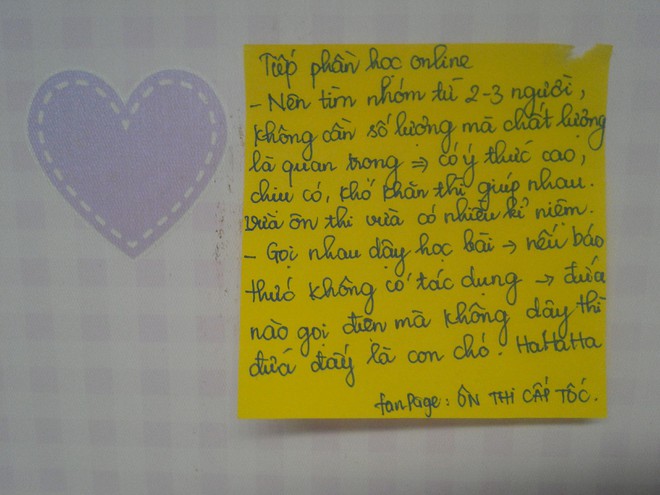 Tiếp phần học online
- Nên tìm nhóm từ 2-3 người,
không cần số lượng mà chất lượng
là quan trọng ⇒ có ý thức cao,
chịu có, khó khăn thì giúp nhau.
vừa ôn thi vừa có nhiều kỉ niệm.
- Gọi nhau dậy học bài → nếu báo
thức không có tác dụng → đứa
nào gọi điện mà không dậy thì
đứa đấy là con chó. HaHaHa
fanpage: ÔN THI CẤP TỐC.